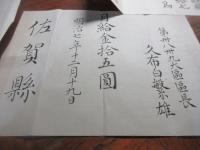 第卅卅九大區區長
久布白繁雄
月給金拾五圓
明治七年十二月十九日
佐賀縣